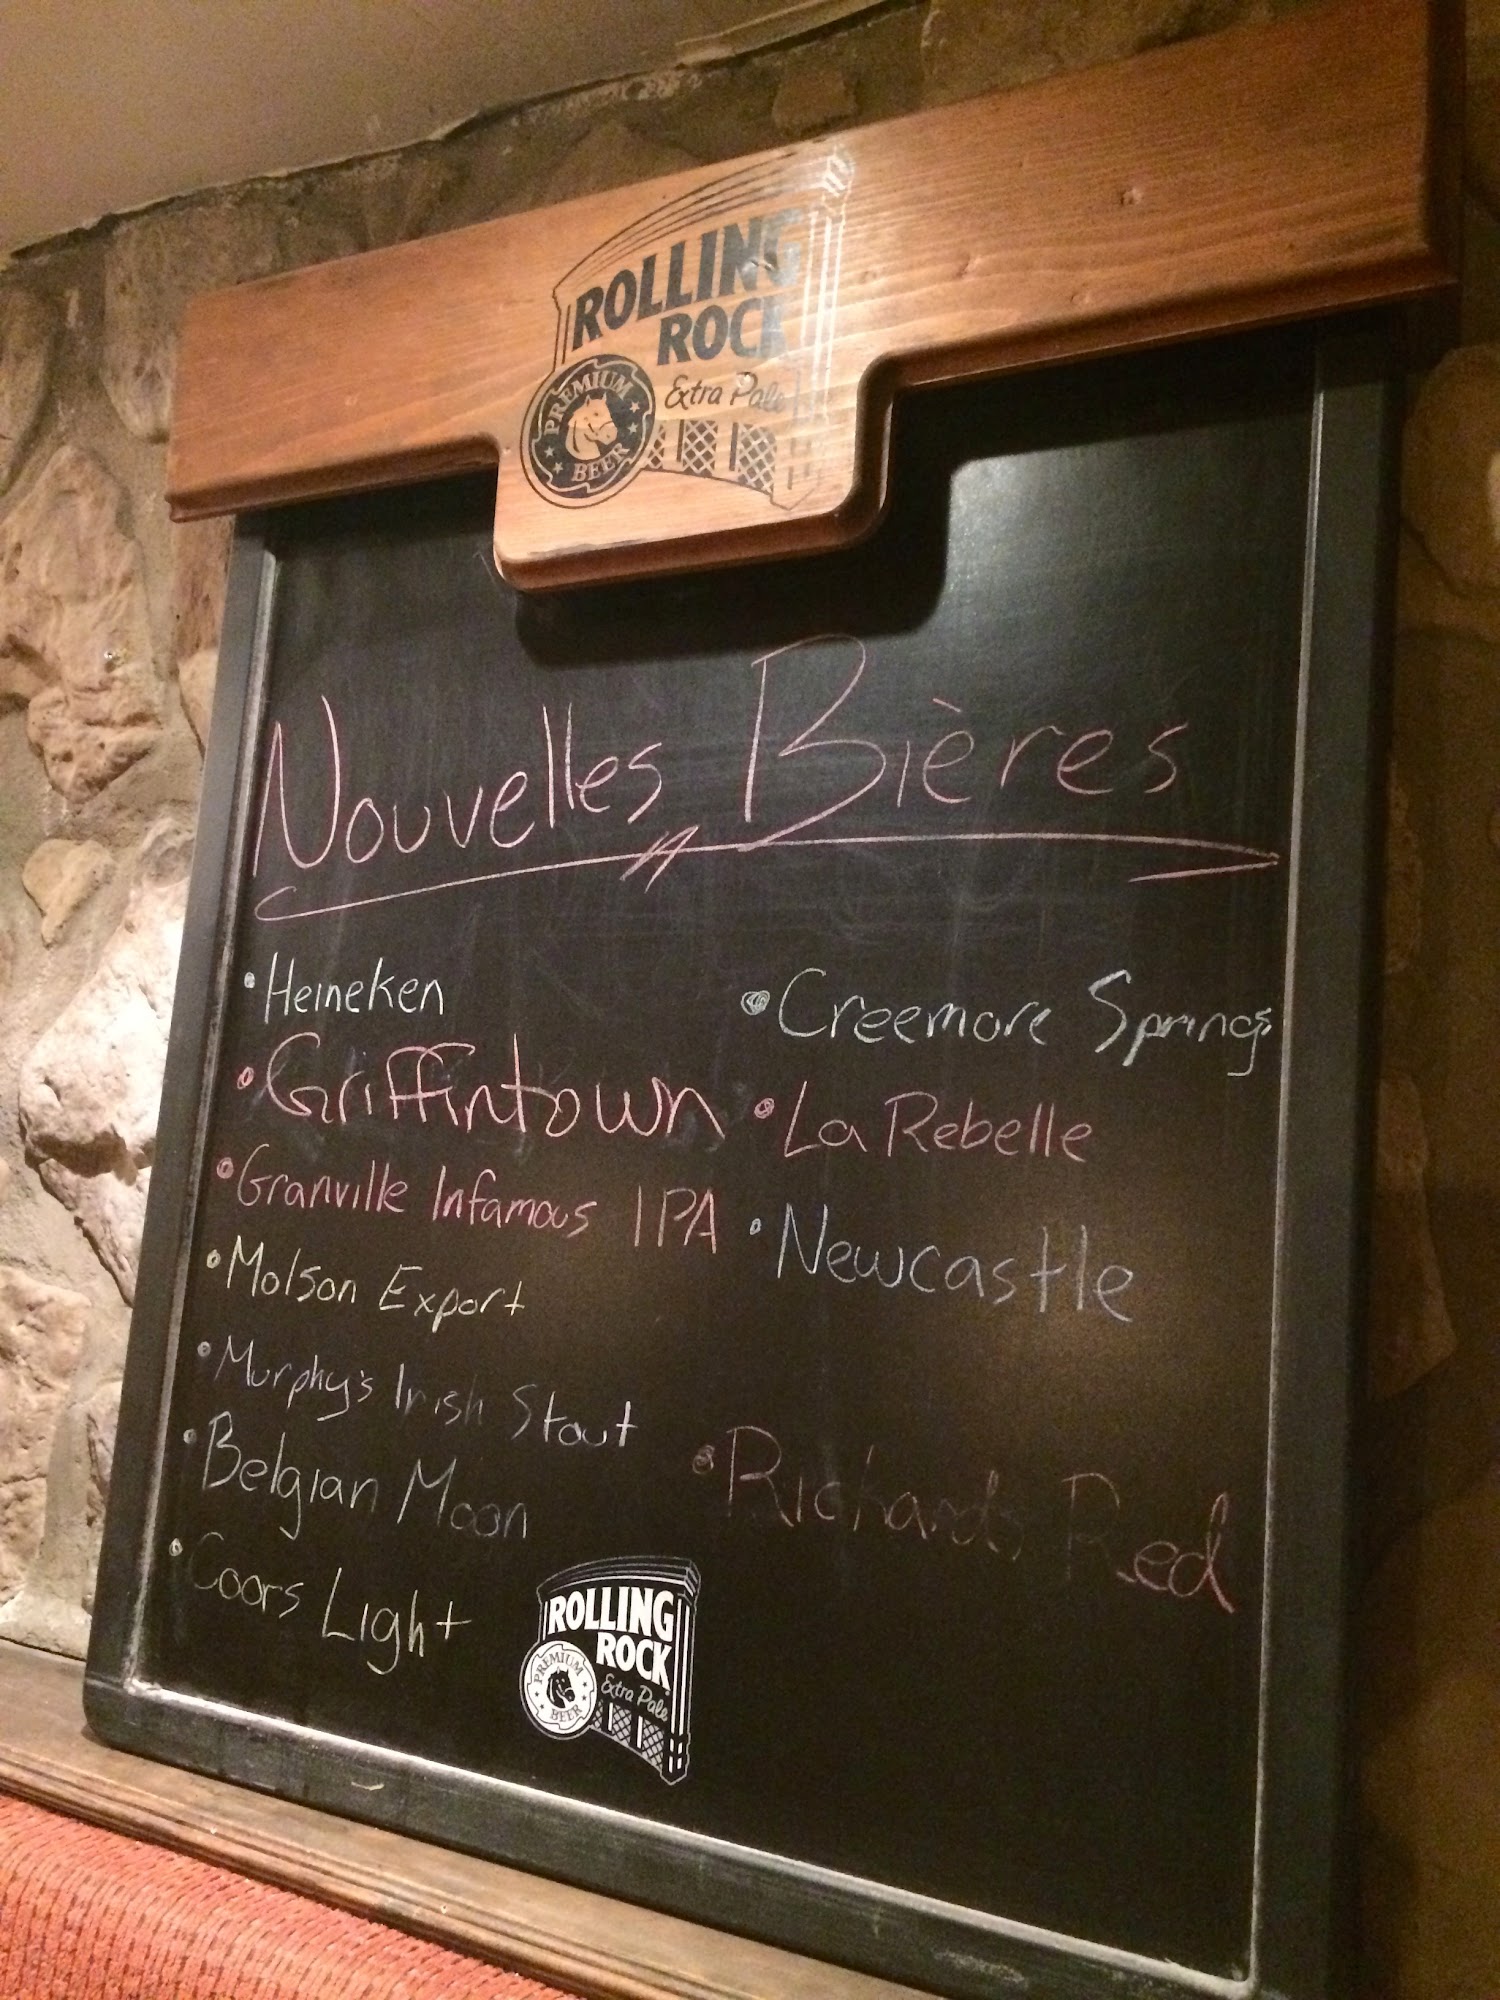 ROLLING
ROCK
Extra Pale
PREMIUM
BEER
Nouvelles Bières
• Heineken
• Griffintown
• Granville Infamous IPA
• Molson Export
• Murphy's Irish Stout
• Belgian Moon
• Coors Light
• Creemore Springs
• La Rebelle
• Newcastle
• Richards Red
ROLLING
ROCK
Extra Pale
PREMIUM
BEER